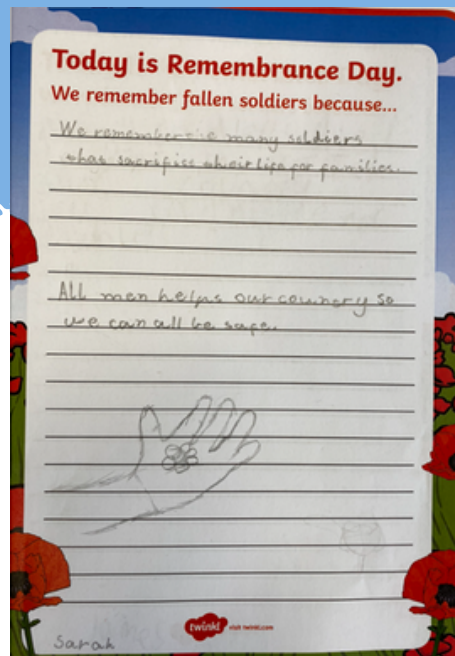 Today is Remembrance Day.
We remember fallen soldiers because...
We remember the many soldiers
that sacrifiss their life for families.
All men helps our country so
we can all be safe.
twinkl visit twinkl.com
Sarah